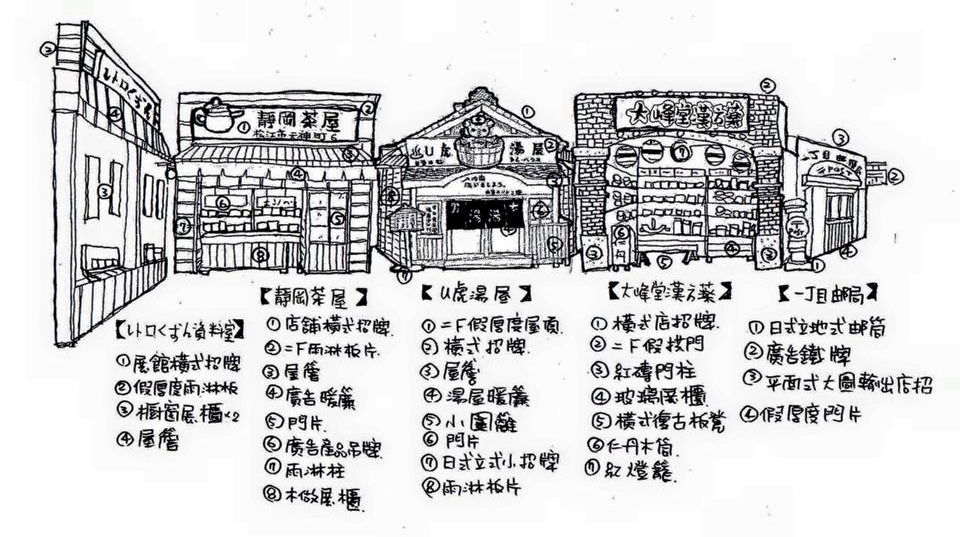 レトロくずん
静岡茶屋
松江市天神町6
ひ虎
湯屋
湯湯
大峰堂漢方薬
一丁目郵局
POST
【レトロくずん資料室】
①展館橫式招牌
②假厚度雨淋板
③櫥窗展櫃x2
④屋簷
【靜岡茶屋】
①店舖橫式招牌.
②二F雨淋板片.
③屋簷
④廣告暖簾
⑤門片.
⑥廣告產品吊牌.
⑦雨淋柱
⑧木做展櫃
【ひ虎湯屋】
①二F假厚度屋頂.
②橫式招牌.
③屋簷
④湯屋暖簾
⑤小圍籬
⑥門片
⑦日式立式小招牌
⑧雨淋板片
【大峰堂漢方薬】
①橫式店招牌.
②二F假拱門
③紅磚門柱
④玻璃展櫃
⑤橫式復古板凳
⑥仁丹木筒.
⑦紅燈籠.
【一丁目郵局】
①日式立地式郵筒
②廣告鐵牌
③平面式大圖輸出店招
④假厚度門片